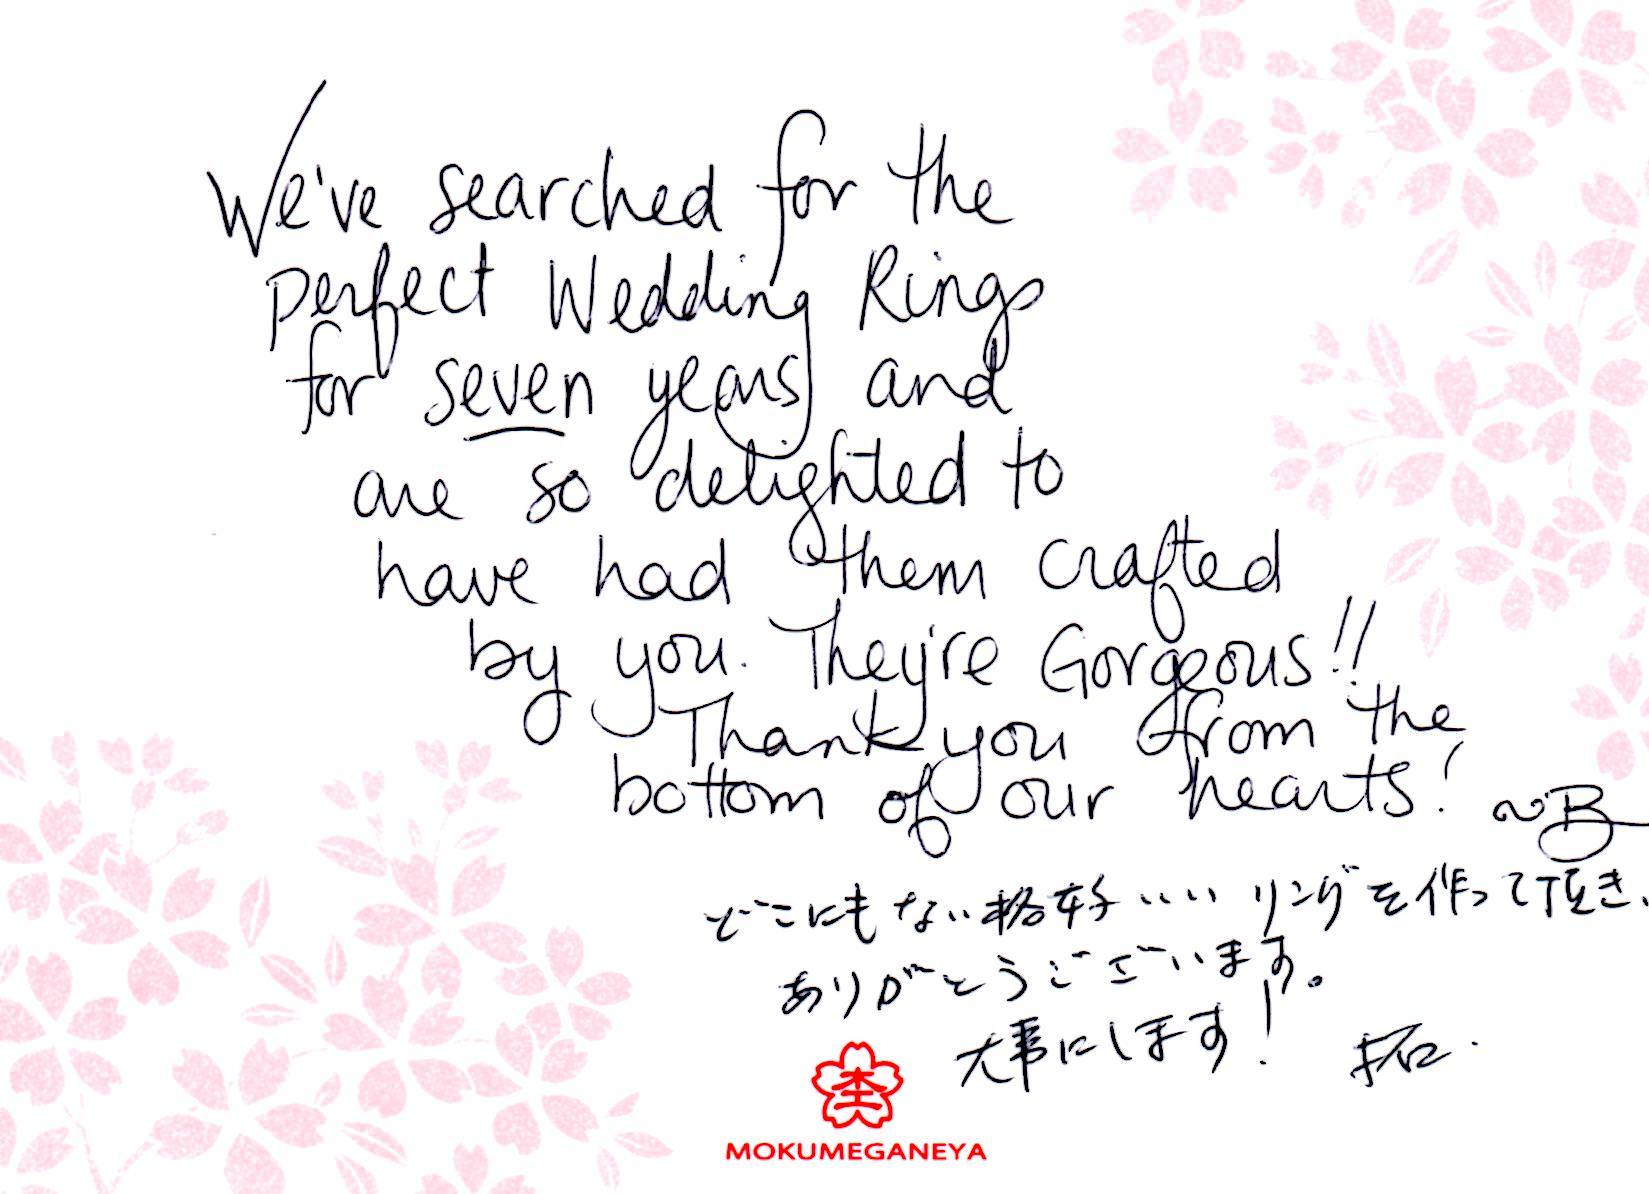 We've searched for the
perfect Wedding Rings
for seven years and
are so delighted to
have had them crafted
by you. They're Gorgeous!!
Thank you from the
bottom of our hearts! ~B
どこにもない格好いいリングを作って頂き、
ありがとうございます。
大事にします! 拓.
MOKUMEGANEYA